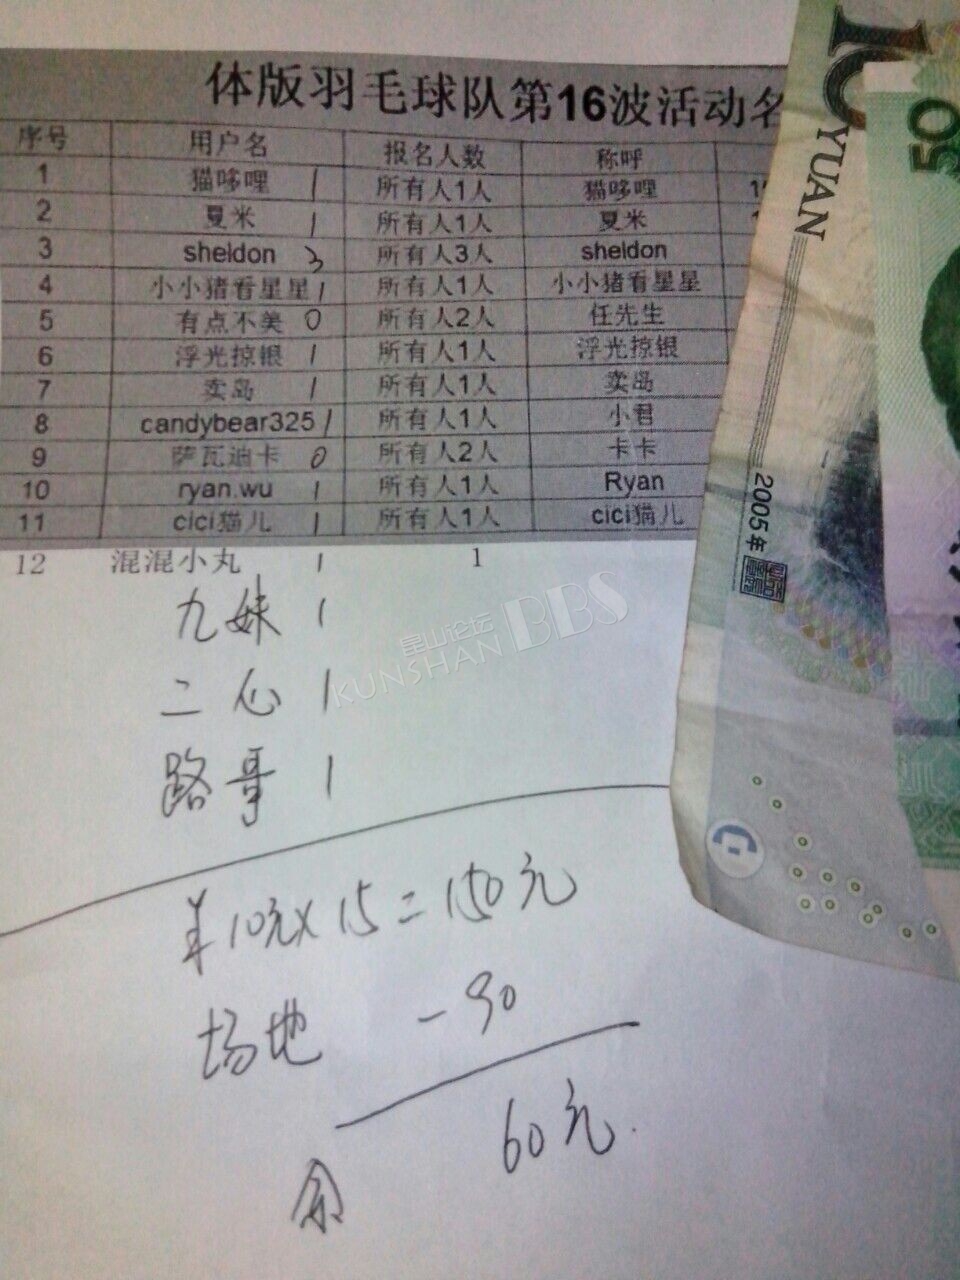 体版羽毛球队第16波活动名
序号 用户名 报名人数 称呼
1 猫哆哩 1 所有人1人 猫哆哩
2 夏米 1 所有人1人 夏米
3 sheldon 3 所有人3人 sheldon
4 小小猪看星星 1 所有人1人 小小猪看星星
5 有点不美 0 所有人2人 任先生
6 浮光掠银 1 所有人1人 浮光掠银
7 卖岛 1 所有人1人 卖岛
8 candybear325 1 所有人1人 小君
9 萨瓦迪卡 0 所有人2人 卡卡
10 ryan.wu 1 所有人1人 Ryan
11 cici猫儿 1 所有人1人 cici猫儿
12 混混小丸 1 1
九妹 1
二心 1
路哥 1
¥10元×15=150元
场地 -90
余 60元.
10
YUAN
2005年
50
昆山论坛
KUNSHAN BBS